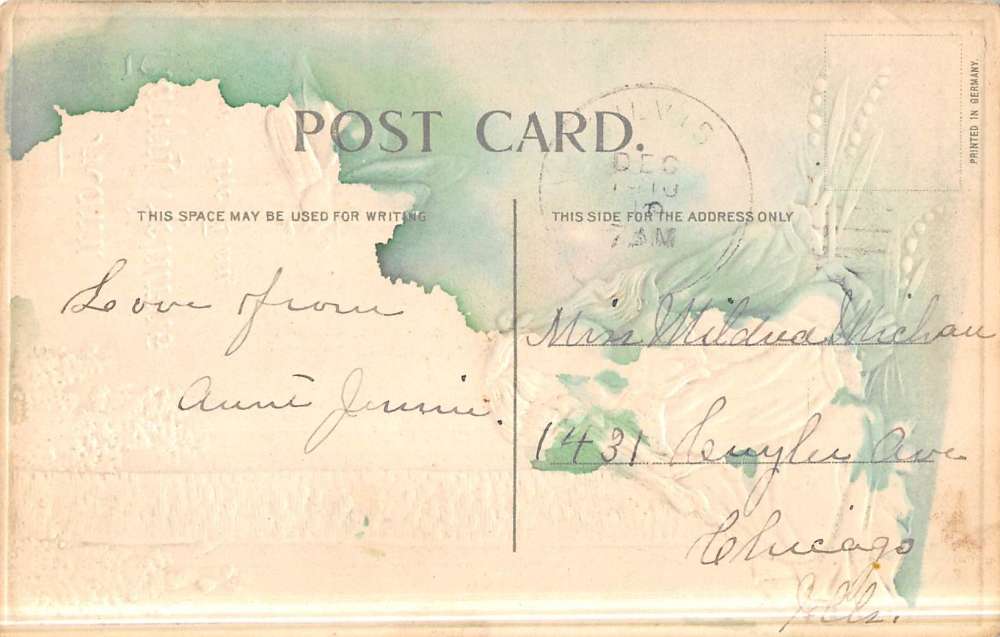 POST CARD.
PRINTED IN GERMANY.
DEC
7 AM
THIS SPACE MAY BE USED FOR WRITING
THIS SIDE FOR THE ADDRESS ONLY
Love from
Aunt Jennie.
Miss Mildred Michau
1431 Cuyler Ave
Chicago
Ills.